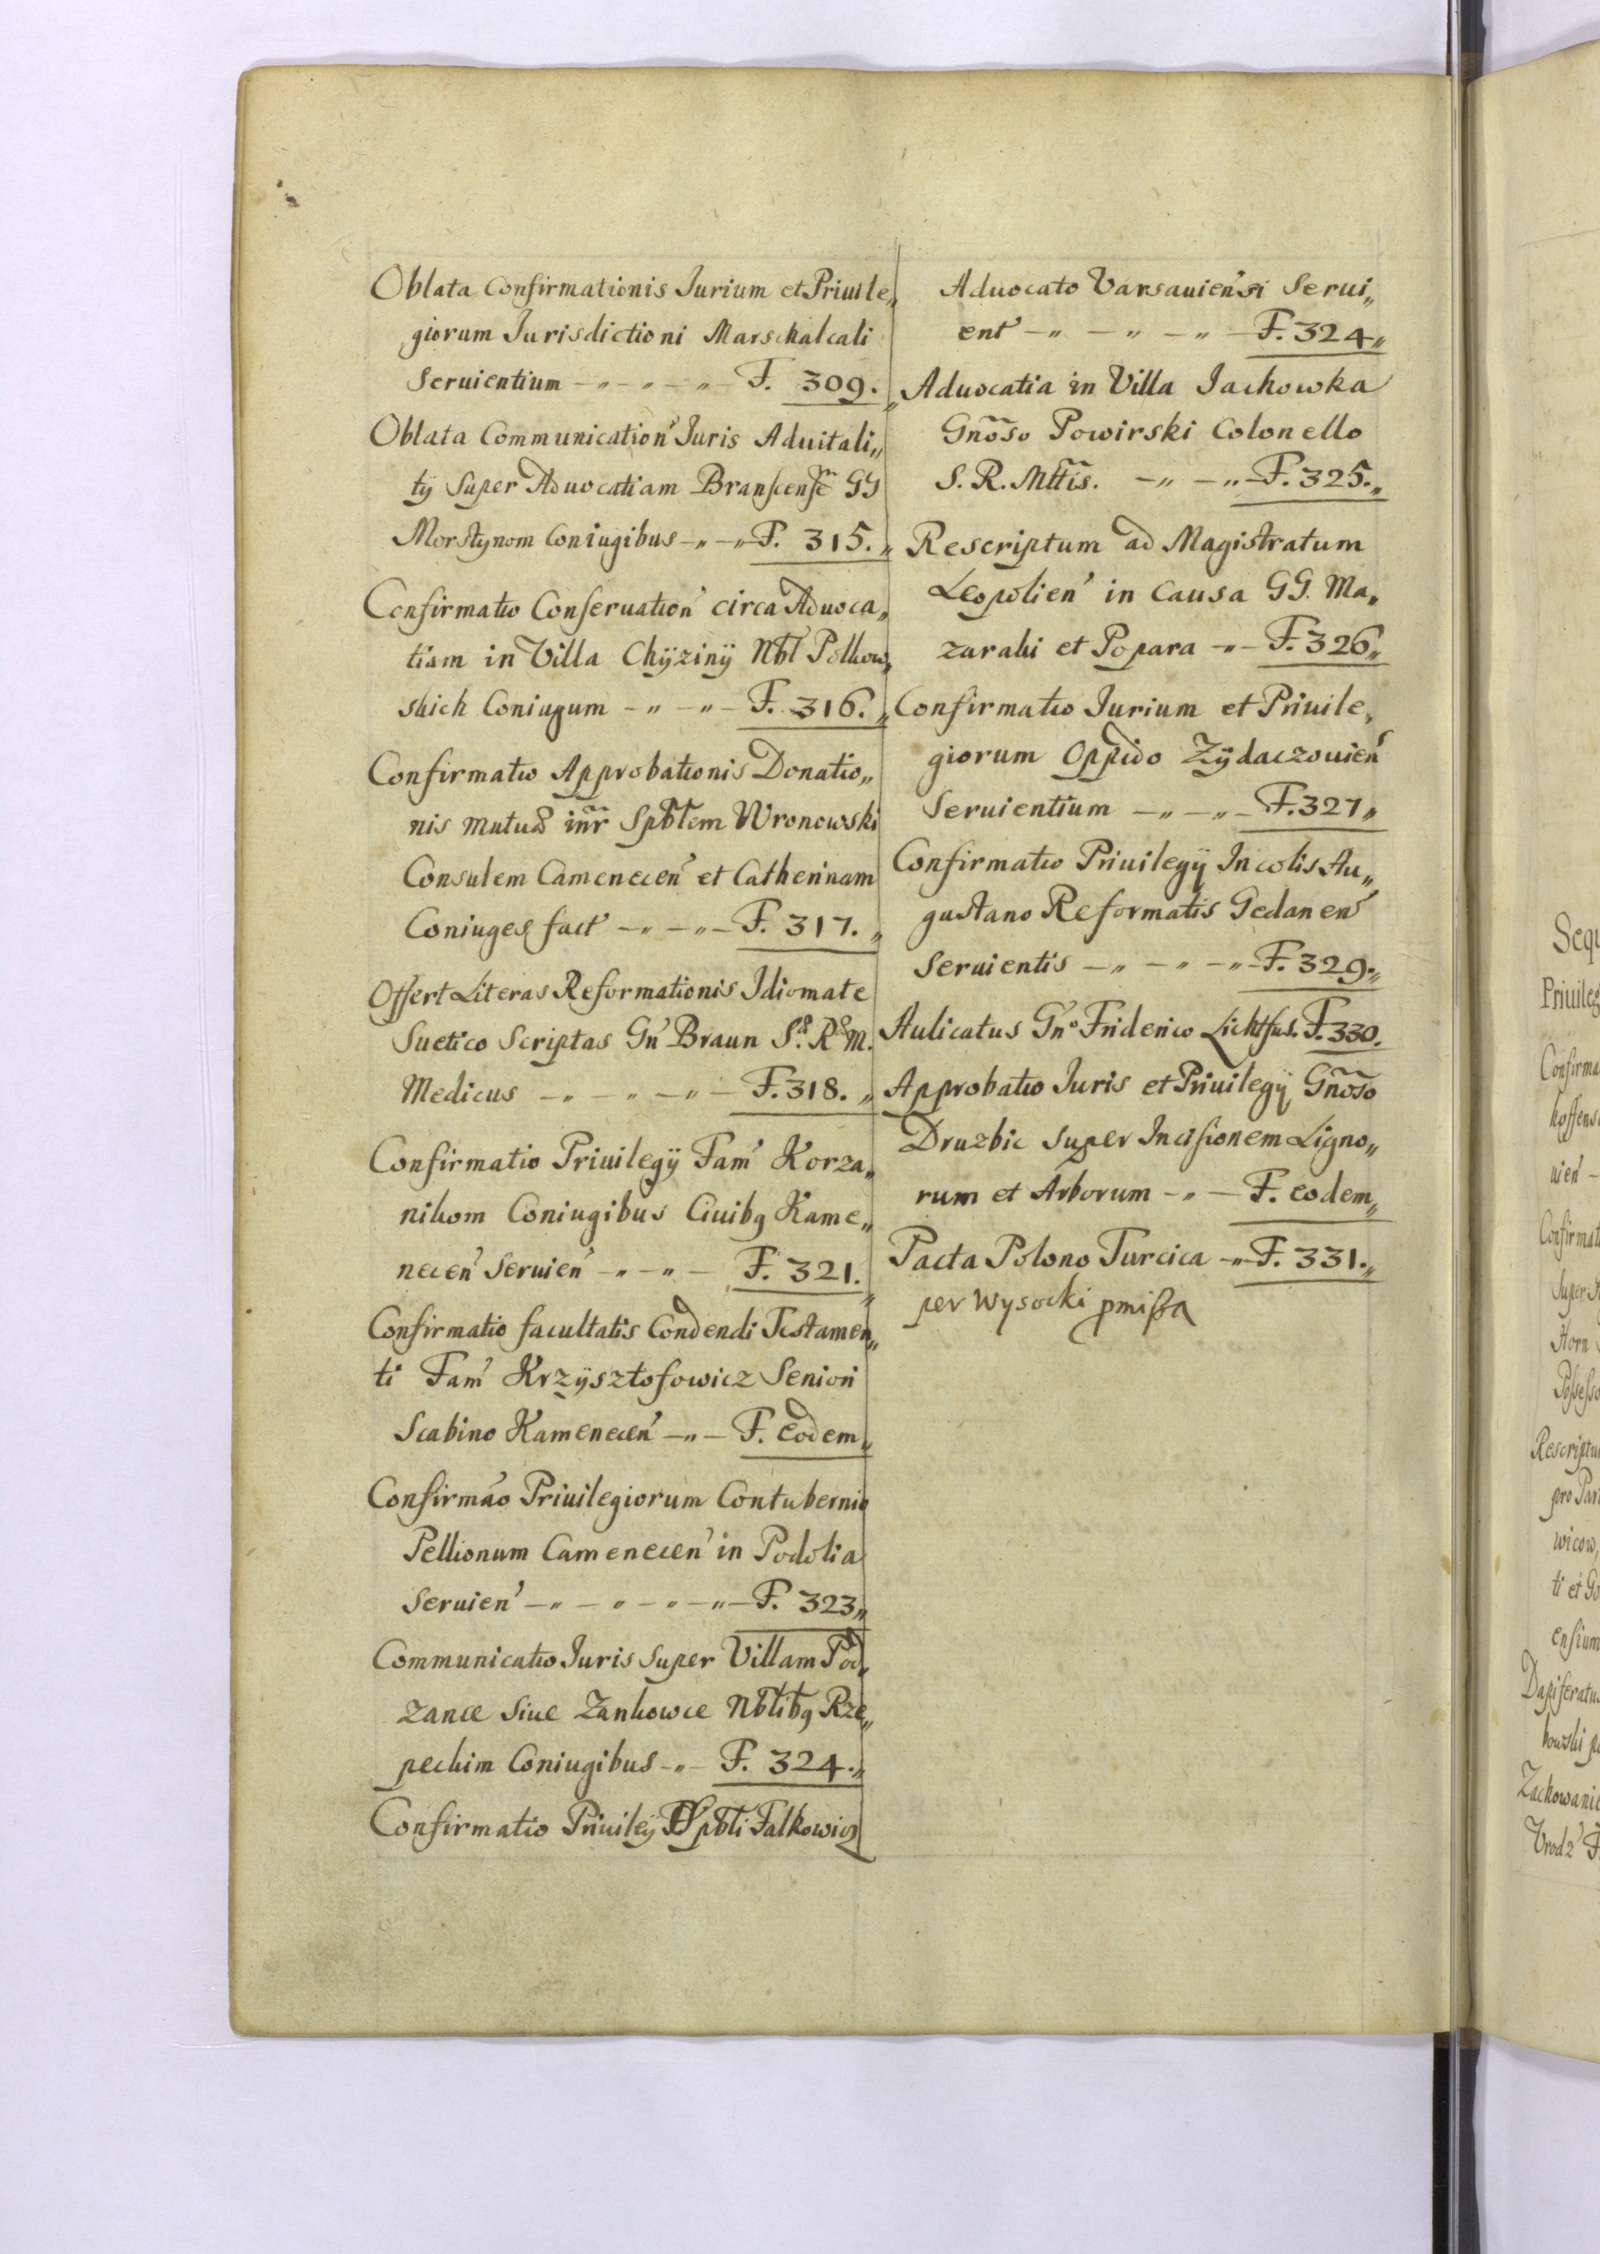 Oblata Confirmationis Jurium et Priuile„
giorum Jurisdictioni Marschalcali
Seruientium —„—„—„— F. 309.
Oblata Communication' Juris Aduitali„
tÿ Super Aduocatiam GG
Morstynom Coniugibus —„—„— F. 315.„
Confirmatio Conseruation' circa Aduoca„
tiam in Villa Chÿzinÿ Nbl Polkow„
skich Coniugum —„—„— F. 316.„
Confirmatio Approbationis Donatio„
nis mutuæ inr̃ Spblem Wronowski
Consulem Camenecen' et Catherinam
Coniuges fact' —„—„— F. 317.„
Offert Literas Reformationis Idiomate
Suetico Scriptas Gn' Braun Sæ. Ræ M.
Medicus —„—„—„— F. 318.„
Confirmatio Priuilegÿ Fam' Korza„
nikom Coniugibus Ciuibq Kame„
necen' Seruien' —„—„— F. 321.„
Confirmatio facultatis Condendi Testamen„
ti Fam' Krzÿsztofowicz Seniori
Scabino Kamenecen' —„— F. Eodem„
Confirmão Priuilegiorum Contubernio
Pellionum Camenecen' in Podolia
Seruien' —„—„—„—„— F. 323„
Communicatio Juris Super Villam Pod„
zance Siue Zankowce Nbtibq Rze„
peckim Coniugibus —„— F. 324.„
Confirmatio Priuilej Spbli Falkowicz
Aduocato Varsauien'si Serui„
ent' —„—„—„— F. 324„
Aduocatia in Villa Jachowka
Gnõso Powirski Colonello
S. R. Mttis. —„—„— F. 325.„
Rescriptum ad Magistratum
Leopolien' in Causa GG. Ma„
zaraki et Popara —„— F. 326„
Confirmatio Jurium et Priuile„
giorum Oppido Zÿdaczouien'
Seruientium —„—„— F. 327„
Confirmatio Priuilegÿ Incolis Au„
gustano Reformatis Gedanen'
Seruientis —„—„—„— F. 329.„
Aulicatus Gn° Friderico Lichtfus. F. 330.
Approbatio Juris et Priuilegÿ Gnõso
Druzbic Super Incisionem Ligno„
rum et Arborum —„— F. eodem„
Pacta Polono Turcica —„— F. 331.„
per Wysocki pmißa
Sequ
Priuileg
Confirma
hoffens
uien' —
Confirmat
Super
Horn
Possesso
Rescriptu
pro Par
wicow,
ti et Go
ensium
Dapiferatu
kowski p
Zachowanie
Urodz' F.